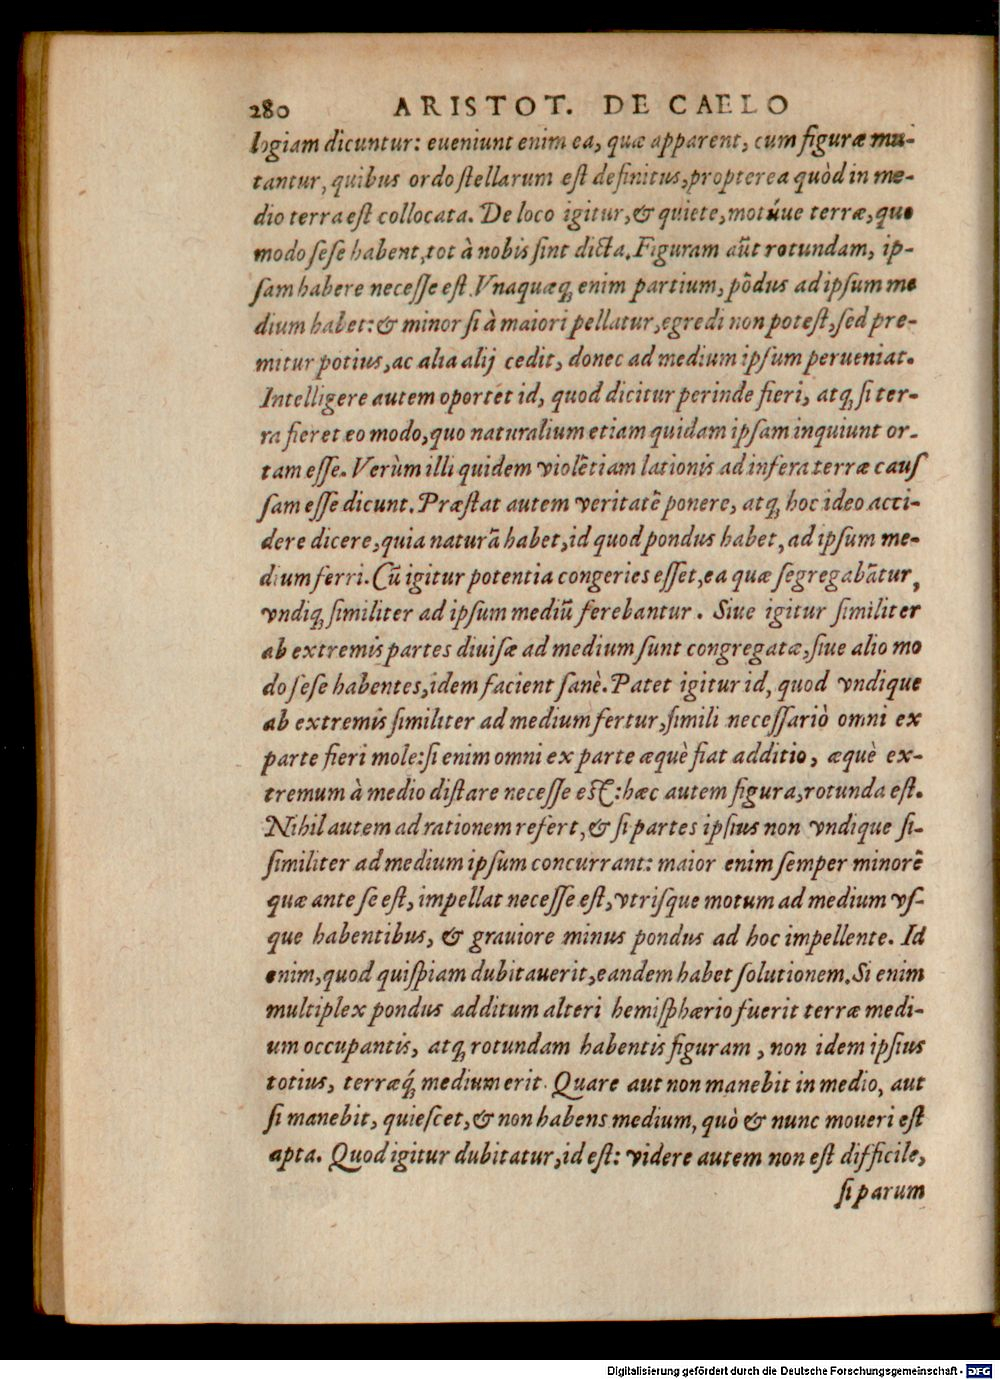 280 ARISTOT. DE CAELO
logiam dicuntur: eueniunt enim ea, quæ apparent, cum figuræ mu-
tantur, quibus ordo stellarum est definitus, propterea quòd in me-
dio terra est collocata. De loco igitur, & quiete, motúue terræ, quo
modo sese habent, tot à nobis sint dicta. Figuram aūt rotundam, ip-
sam habere necesse est. Vnaquæq; enim partium, põdus ad ipsum me
dium habet: & minor si à maiori pellatur, egredi non potest, sed pre-
mitur potius, ac alia alij cedit, donec ad medium ipsum perueniat.
Intelligere autem oportet id, quod dicitur perinde fieri, atq; si ter-
ra fieret eo modo, quo naturalium etiam quidam ipsam inquiunt or-
tam esse. Verùm illi quidem violẽtiam lationis ad infera terræ caus
sam esse dicunt. Præstat autem veritatẽ ponere, atq; hoc ideo acci-
dere dicere, quia naturã habet, id quod pondus habet, ad ipsum me-
dium ferri. Cũ igitur potentia congeries esset, ea quæ segregabãtur,
vndiq; similiter ad ipsum mediũ ferebantur. Siue igitur similiter
ab extremis partes diuisæ ad medium sunt congregatæ, siue alio mo
do sese habentes, idem facient sanè. Patet igitur id, quod vndique
ab extremis similiter ad medium fertur, simili necessariò omni ex
parte fieri mole: si enim omni ex parte æquè fiat additio, æquè ex-
tremum à medio distare necesse est: hæc autem figura, rotunda est.
Nihil autem ad rationem refert, & si partes ipsius non vndique si-
similiter ad medium ipsum concurrant: maior enim semper minorẽ
quæ ante se est, impellat necesse est, vtrisque motum ad medium vs-
que habentibus, & grauiore minus pondus ad hoc impellente. Id
enim, quod quispiam dubitauerit, eandem habet solutionem. Si enim
multiplex pondus additum alteri hemisphærio fuerit terræ medi-
um occupantis, atq; rotundam habentis figuram, non idem ipsius
totius, terræq́; medium erit. Quare aut non manebit in medio, aut
si manebit, quiescet, & non habens medium, quò & nunc moueri est
apta. Quod igitur dubitatur, id est: videre autem non est difficile,
si parum
Digitalisierung gefördert durch die Deutsche Forschungsgemeinschaft - DFG